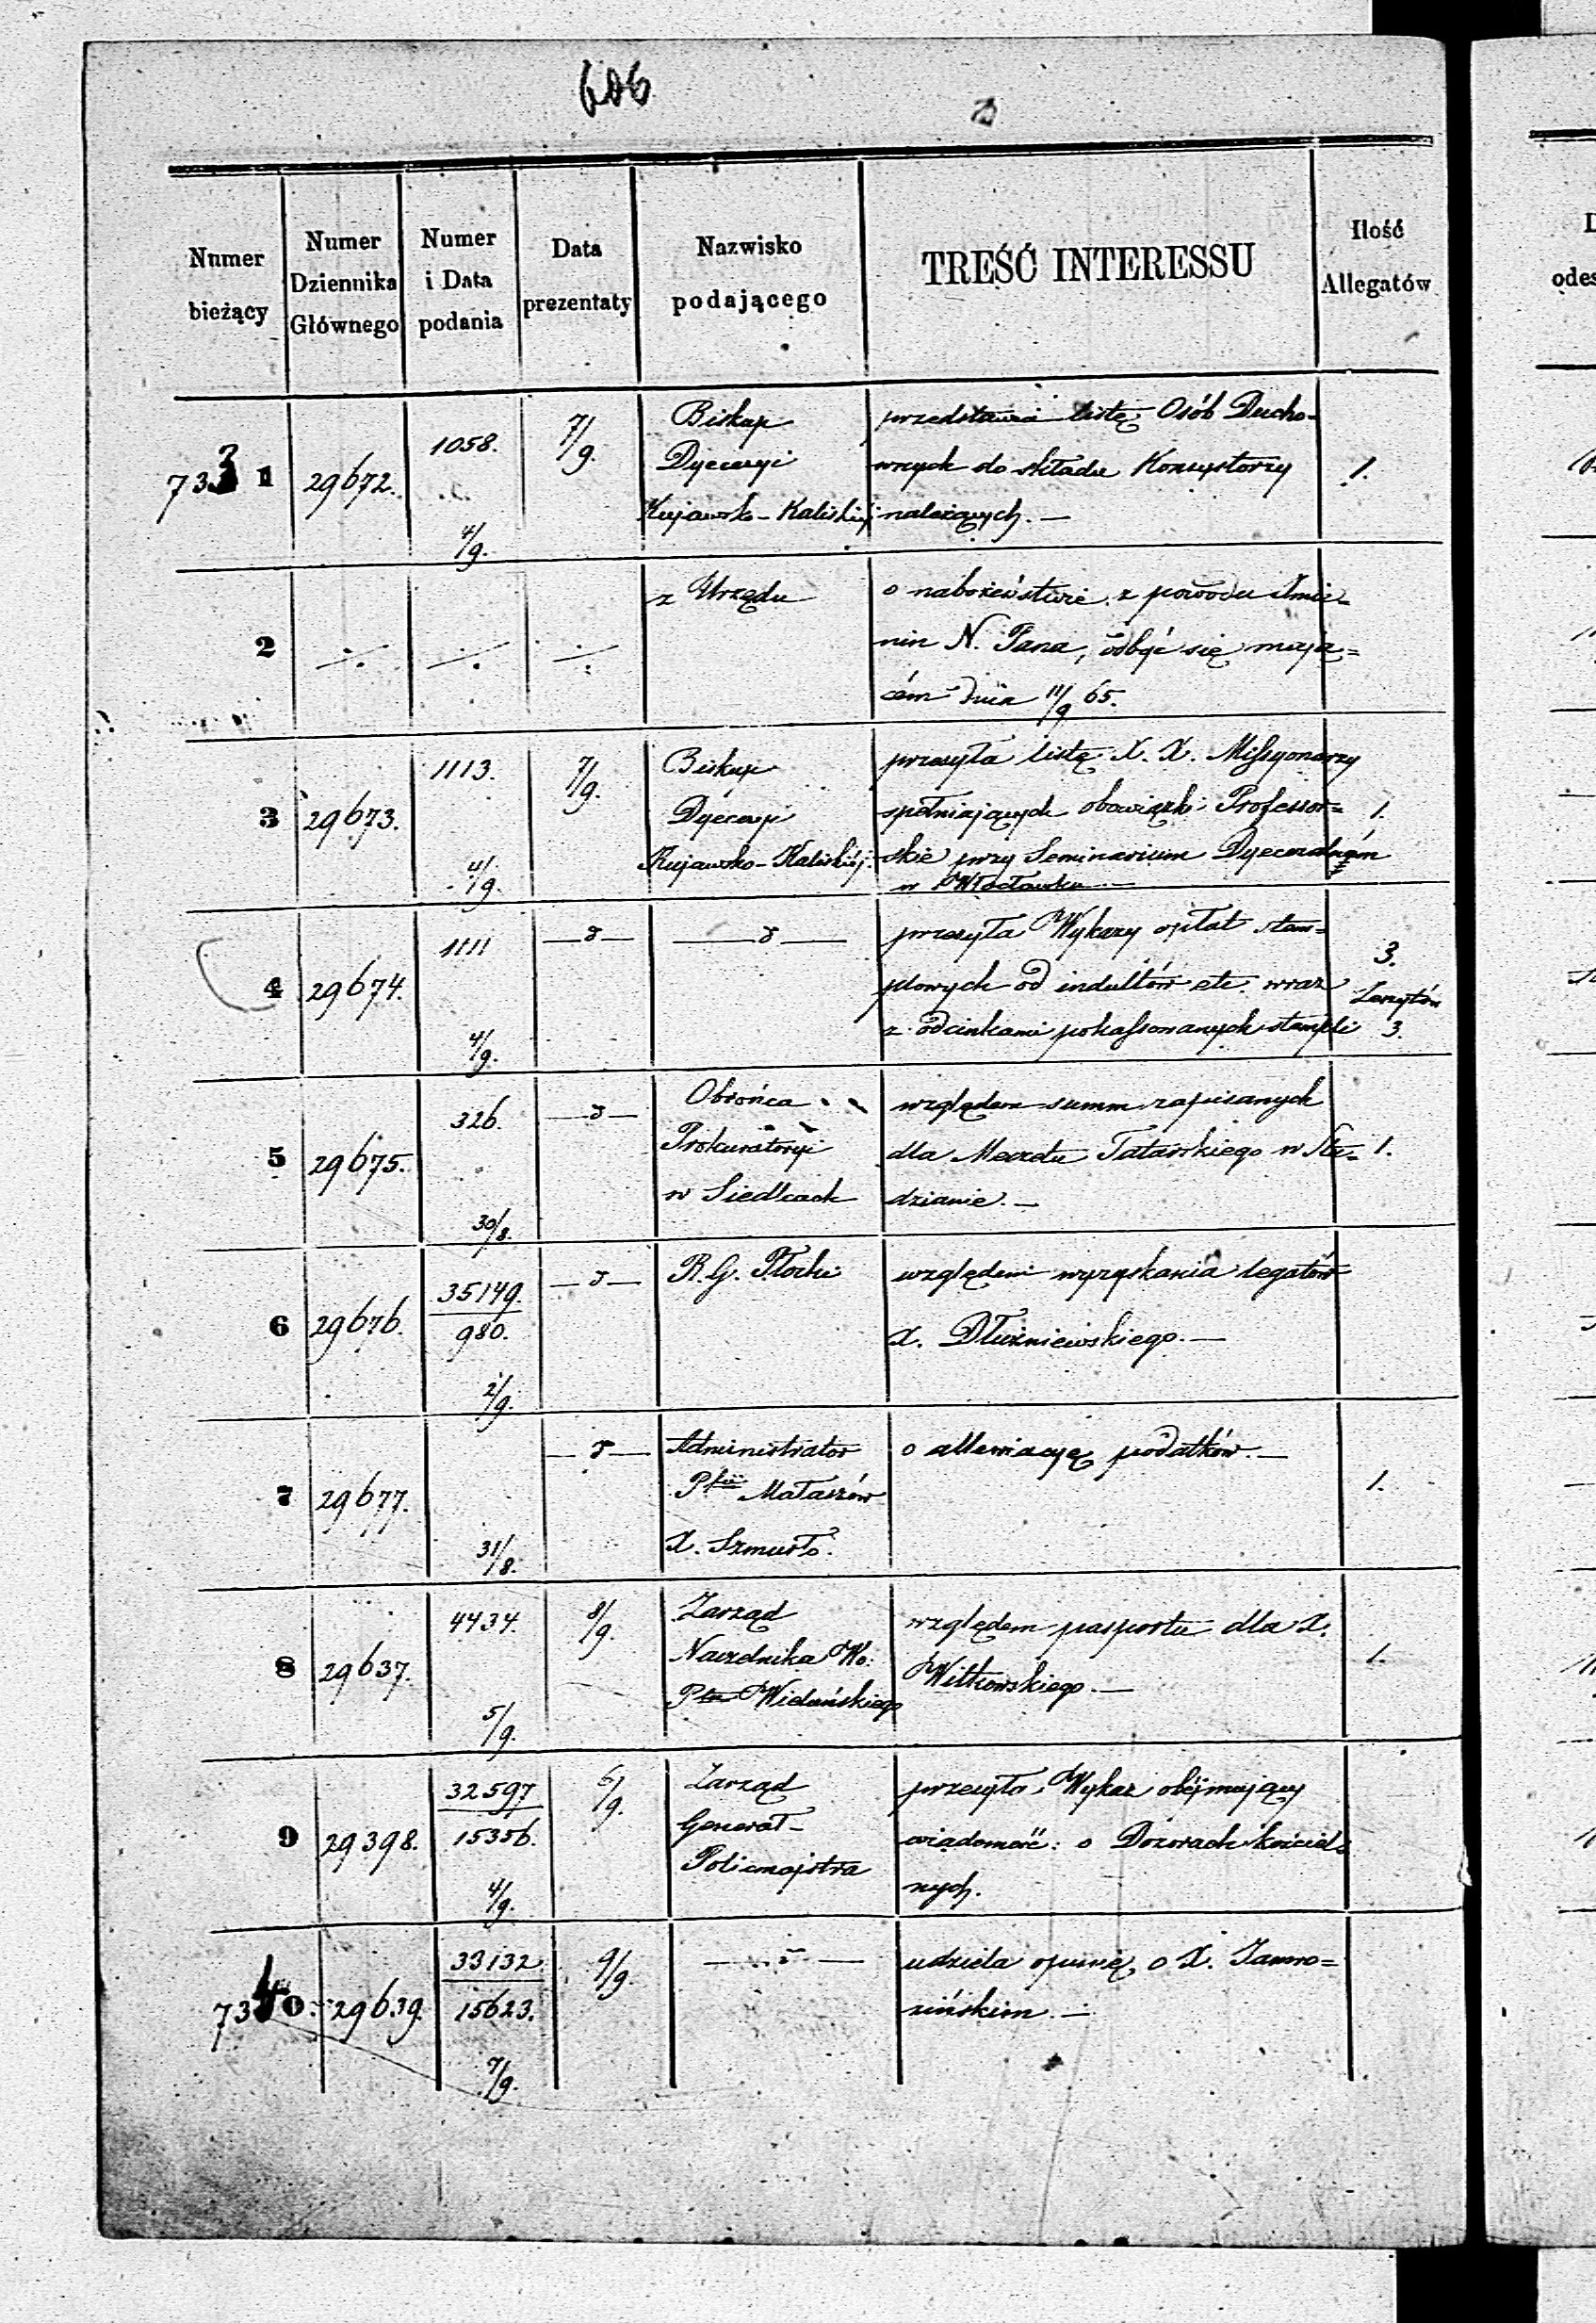 606
Numer bieżący
Numer Dziennika Głównego
Numer i Data podania
Data prezentaty
Nazwisko podającego
TREŚĆ INTERESSU
Ilość Allegatów
7331
29672.
1058.
4/9.
7/9.
Biskup
Dyecezyi
Kujawsko-Kaliskiéj
przedstawia listę Osób Ducho-
wnych do składu Konsystorzy
należących. —
1.
2
z Urzędu
o nabożeństwie z powodu Imie-
nin N. Pana, odbyć się mają=
cém dnia 11/9 65.
3
29673.
1113.
4/9.
7/9.
Biskup
Dyecezyi
Kujawsko-Kaliskiéj.
przesyła listę X. X. Missyonarzy
spełniających obowiązki Professor=
skie przy Seminarium Dyecezalném
w Włocławku —
1.
4
29674.
1111
4/9.
— d —
— d —
przesyła Wykazy opłat stem=
plowych od indultów etc. wraz
z odcinkami pokassowanych stempli
3.
Zeszytów
3.
5
29675.
326.
30/8.
— d —
Obrońca
Prokuratoryi
w Siedlcach
względem summ zapisanych
dla Meczetu Tatarskiego w Stu-
dziance. —
1.
6
29676.
35149.
980.
2/9.
— d —
R. G. Płocki
względem wyzyskania legatów
X. Dłużniewskiego. —
7
29677.
31/8.
— d —
Administrator
Pfii Mataszów
X. Szmurło.
o allewiacyę podatków. —
1.
8
29637.
4434.
5/9.
8/9.
Zarząd
Naczelnika Wo:
Ptu Wieluńskiego
względem pasportu dla X.
Witkowskiego. —
1.
9
29398.
32597
15356.
4/9.
6/9.
Zarząd
Generał-
Policmajstra
przesyła Wykaz obejmujący
wiadomość: o Dozorach kościel-
nych.
7340.
29639.
33132
15623.
7/9.
9/9.
— d —
udziela opinię o X. Jamro=
zińskim. —